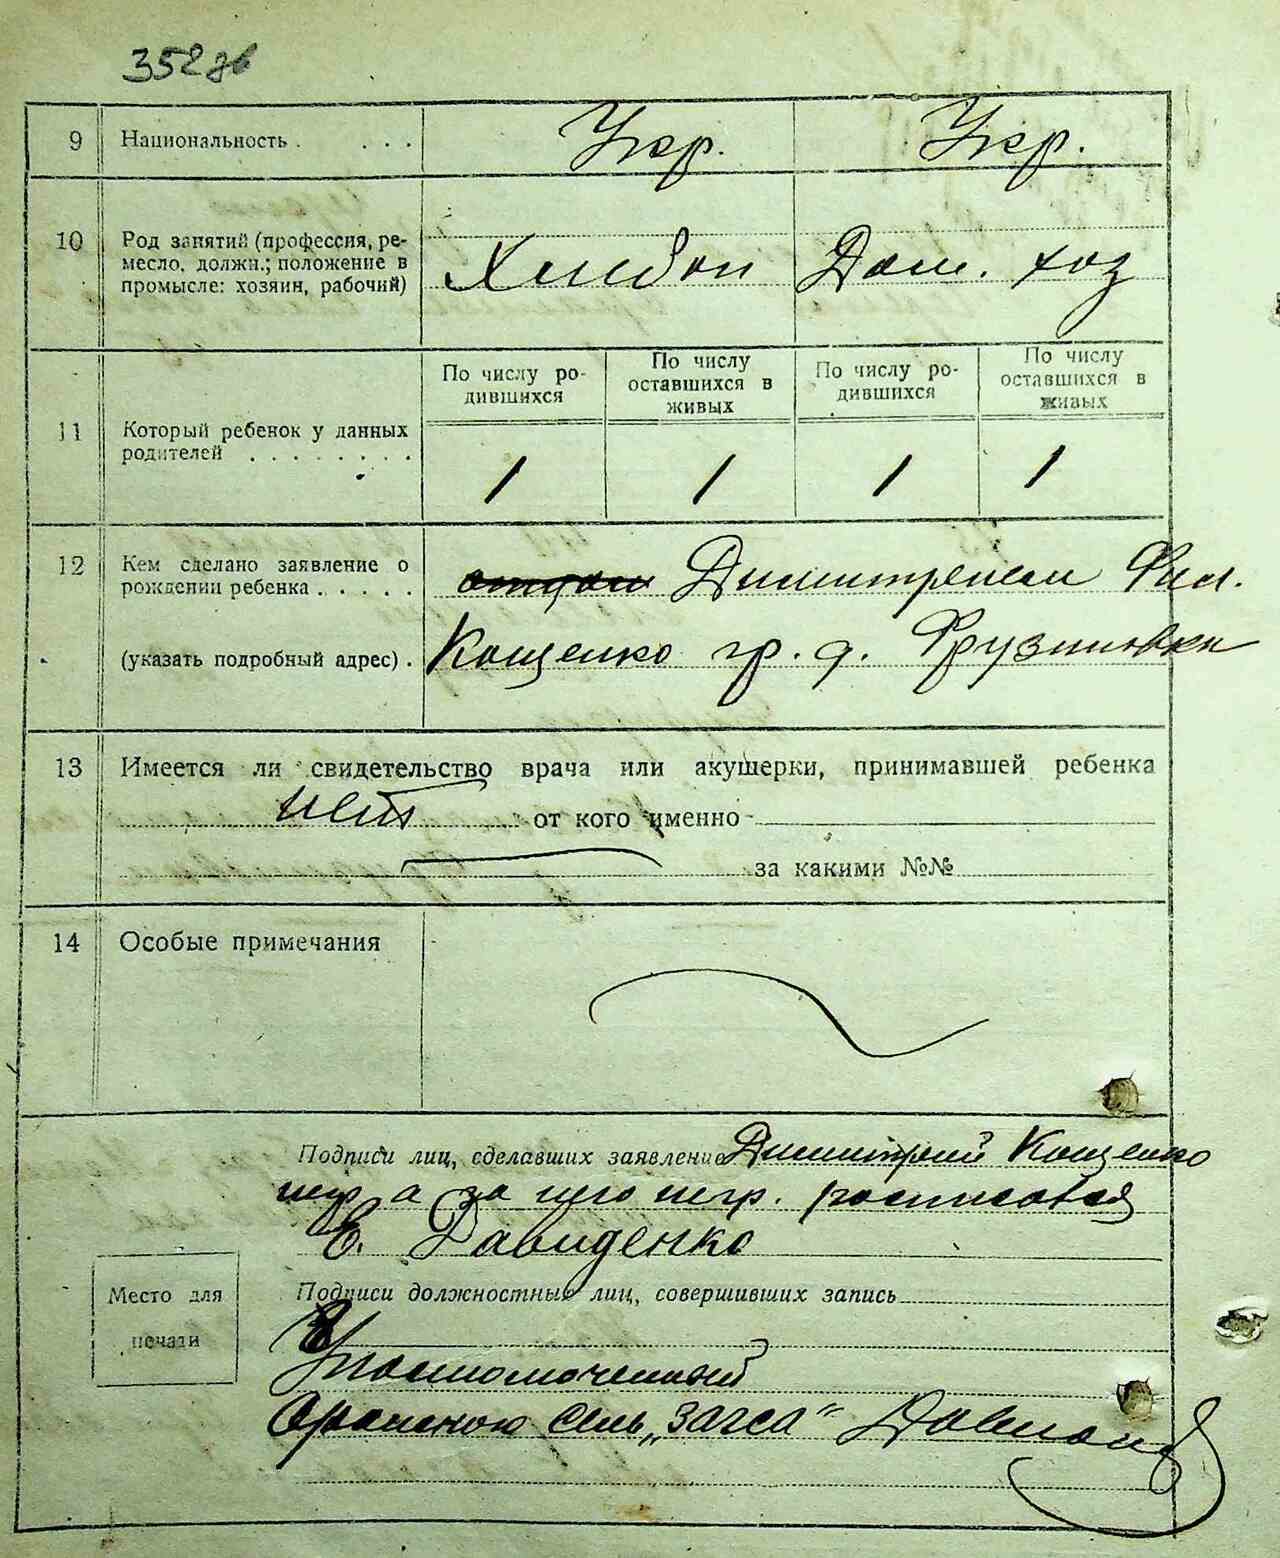 352 зв
9 Национальность . . . . Укр. Укр.
10 Род занятий (профессия, ре-
месло, должн.; положение в
промысле: хозяин, рабочий)
Хлебоп Дом. хоз
11 Который ребенок у данных
родителей . . . . . . . .
По числу ро-
дившихся
По числу
оставшихся в
живых
По числу ро-
дившихся
По числу
оставшихся в
живых
1 1 1 1
12 Кем сделано заявление о
рождении ребенка . . . . .
(указать подробный адрес) .
отцом Димитрием Фил.
Кощенко гр. д. Фрузиновки
13 Имеется ли свидетельство врача или акушерки, принимавшей ребенка
нет от кого именно
за какими №№
14 Особые примечания
Подписи лиц, сделавших заявление Димитрий Кощенко
негр а за него негр. росписался
Е. Давиденко
Место для
печати
Подписи должностных лиц, совершивших запись
Уполномоченный
сель „Загса“